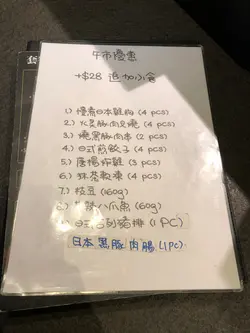 午市優惠
+$28 追加小食
1.) 慢煮日本雞胸 (4 pcs)
2.) 火炙豚肉 (4 pcs)
3.) 燒黑豚肉串 (2 pcs)
4.) 日式煎餃子 (4 pcs)
5.) 唐楊炸雞 (3 pcs)
6.) 抹茶軟凍 (4 pcs)
7.) 枝豆 (160g)
八爪魚 (60g)
日式吉列豬排 (1 PC)
日本黑豚肉腸 (1PC)